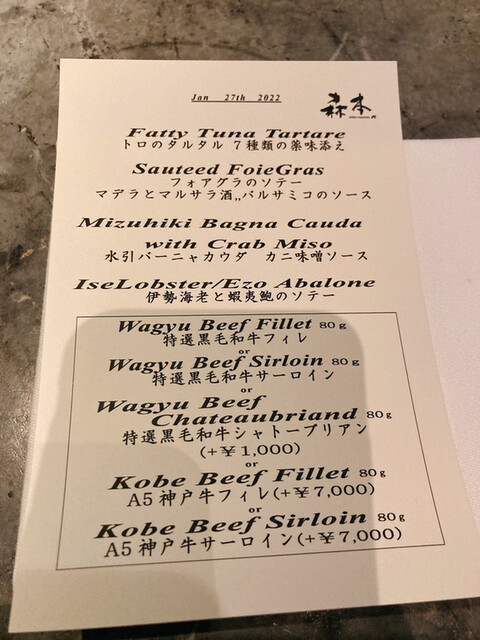 Jan 27th 2022
森本
Fatty Tuna Tartare
トロのタルタル 7種類の薬味添え
Sauteed FoieGras
フォアグラのソテー
マデラとマルサラ酒,,バルサミコのソース
Mizuhiki Bagna Cauda
with Crab Miso
水引バーニャカウダ カニ味噌ソース
IseLobster/Ezo Abalone
伊勢海老と蝦夷鮑のソテー
Wagyu Beef Fillet 80g
特選黒毛和牛フィレ
or
Wagyu Beef Sirloin 80g
特選黒毛和牛サーロイン
or
Wagyu Beef
Chateaubriand 80g
特選黒毛和牛シャトーブリアン
(+¥1,000)
or
Kobe Beef Fillet 80g
A5神戸牛フィレ(+¥7,000)
or
Kobe Beef Sirloin 80g
A5神戸牛サーロイン(+¥7,000)